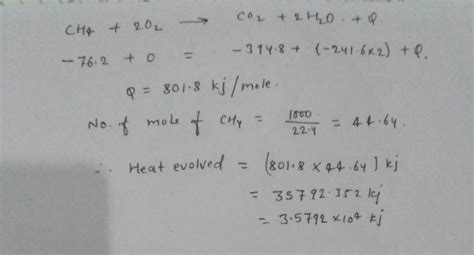 CH4 + 2O2 → CO2 + 2H2O + Q
-76.2 + 0 = -394.8 + (-241.6×2) + Q.
Q = 801.8 kj/mole.
No. of mole of CH4 = 1000/22.4 = 44.64.
∴ Heat evolved = (801.8 × 44.64) kj
= 35792.352 kj
= 3.5792 × 10⁴ kj